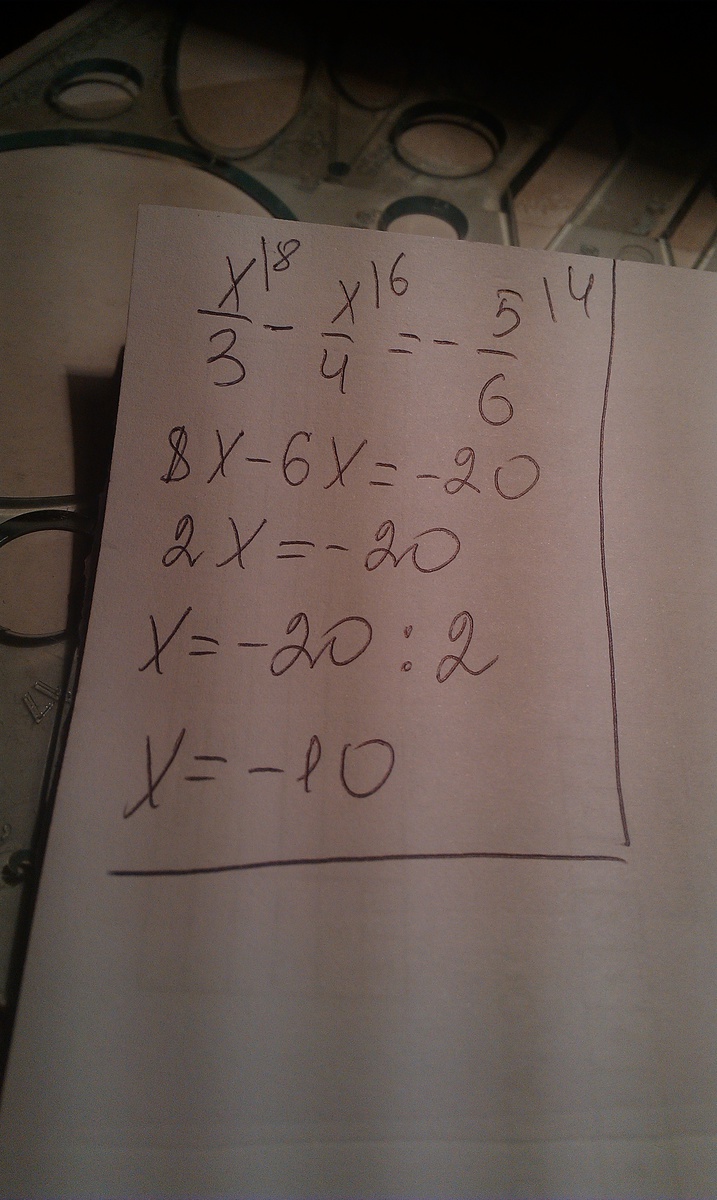 x|8/3 - x|6/4 = - 5|4/6
8x-6x=-20
2x=-20
x=-20:2
x=-10